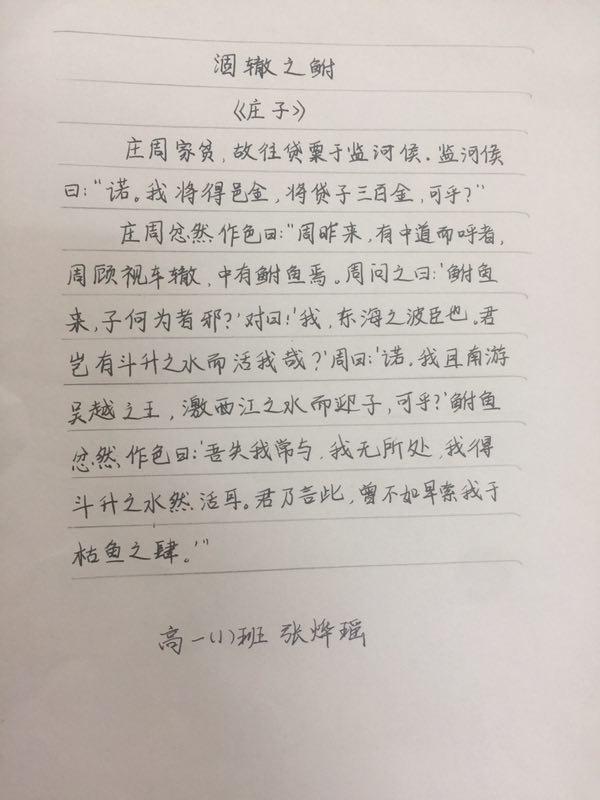 涸辙之鲋
《庄子》
庄周家贫，故往贷粟于监河侯。监河侯
曰：“诺。我将得邑金，将贷子三百金，可乎？”
庄周忿然作色曰：“周昨来，有中道而呼者，
周顾视车辙，中有鲋鱼焉。周问之曰：‘鲋鱼
来，子何为者邪？’对曰：‘我，东海之波臣也。君
岂有斗升之水而活我哉？’周曰：‘诺。我且南游
吴越之王，激西江之水而迎子，可乎？’鲋鱼
忿然作色曰：‘吾失我常与，我无所处，我得
斗升之水然活耳。君乃言此，曾不如早索我于
枯鱼之肆。’”
高一（1）班 张烨瑶